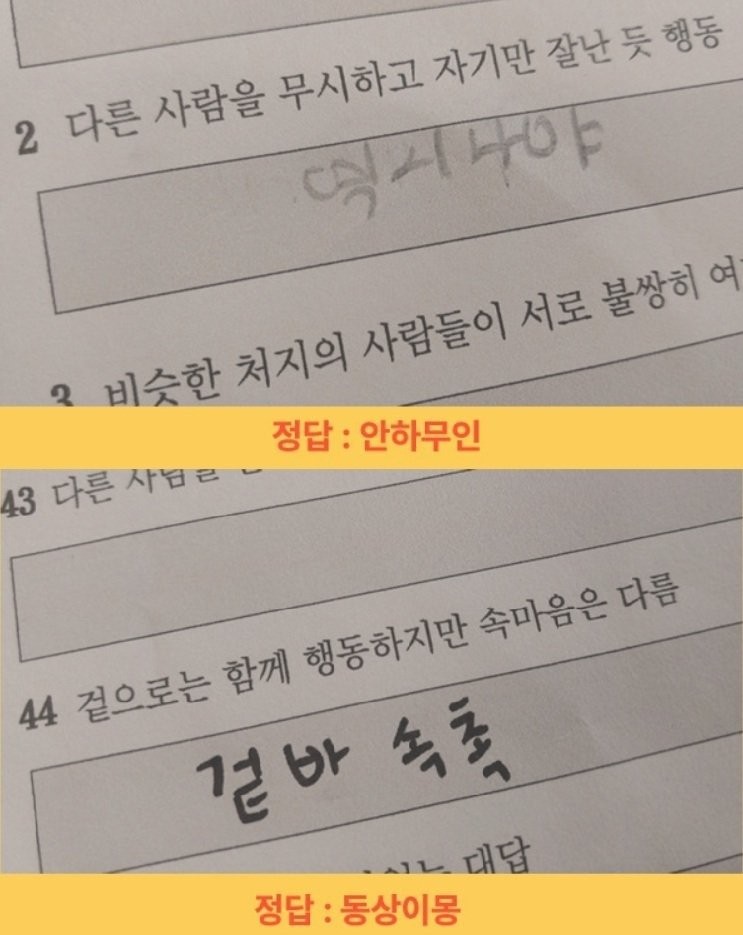 2 다른 사람을 무시하고 자기만 잘난 듯 행동
역시나야
3 비슷한 처지의 사람들이 서로 불쌍히 여
정답 : 안하무인
43 다른 사람을
44 겉으로는 함께 행동하지만 속마음은 다름
겉바 속촉
대답
정답 : 동상이몽